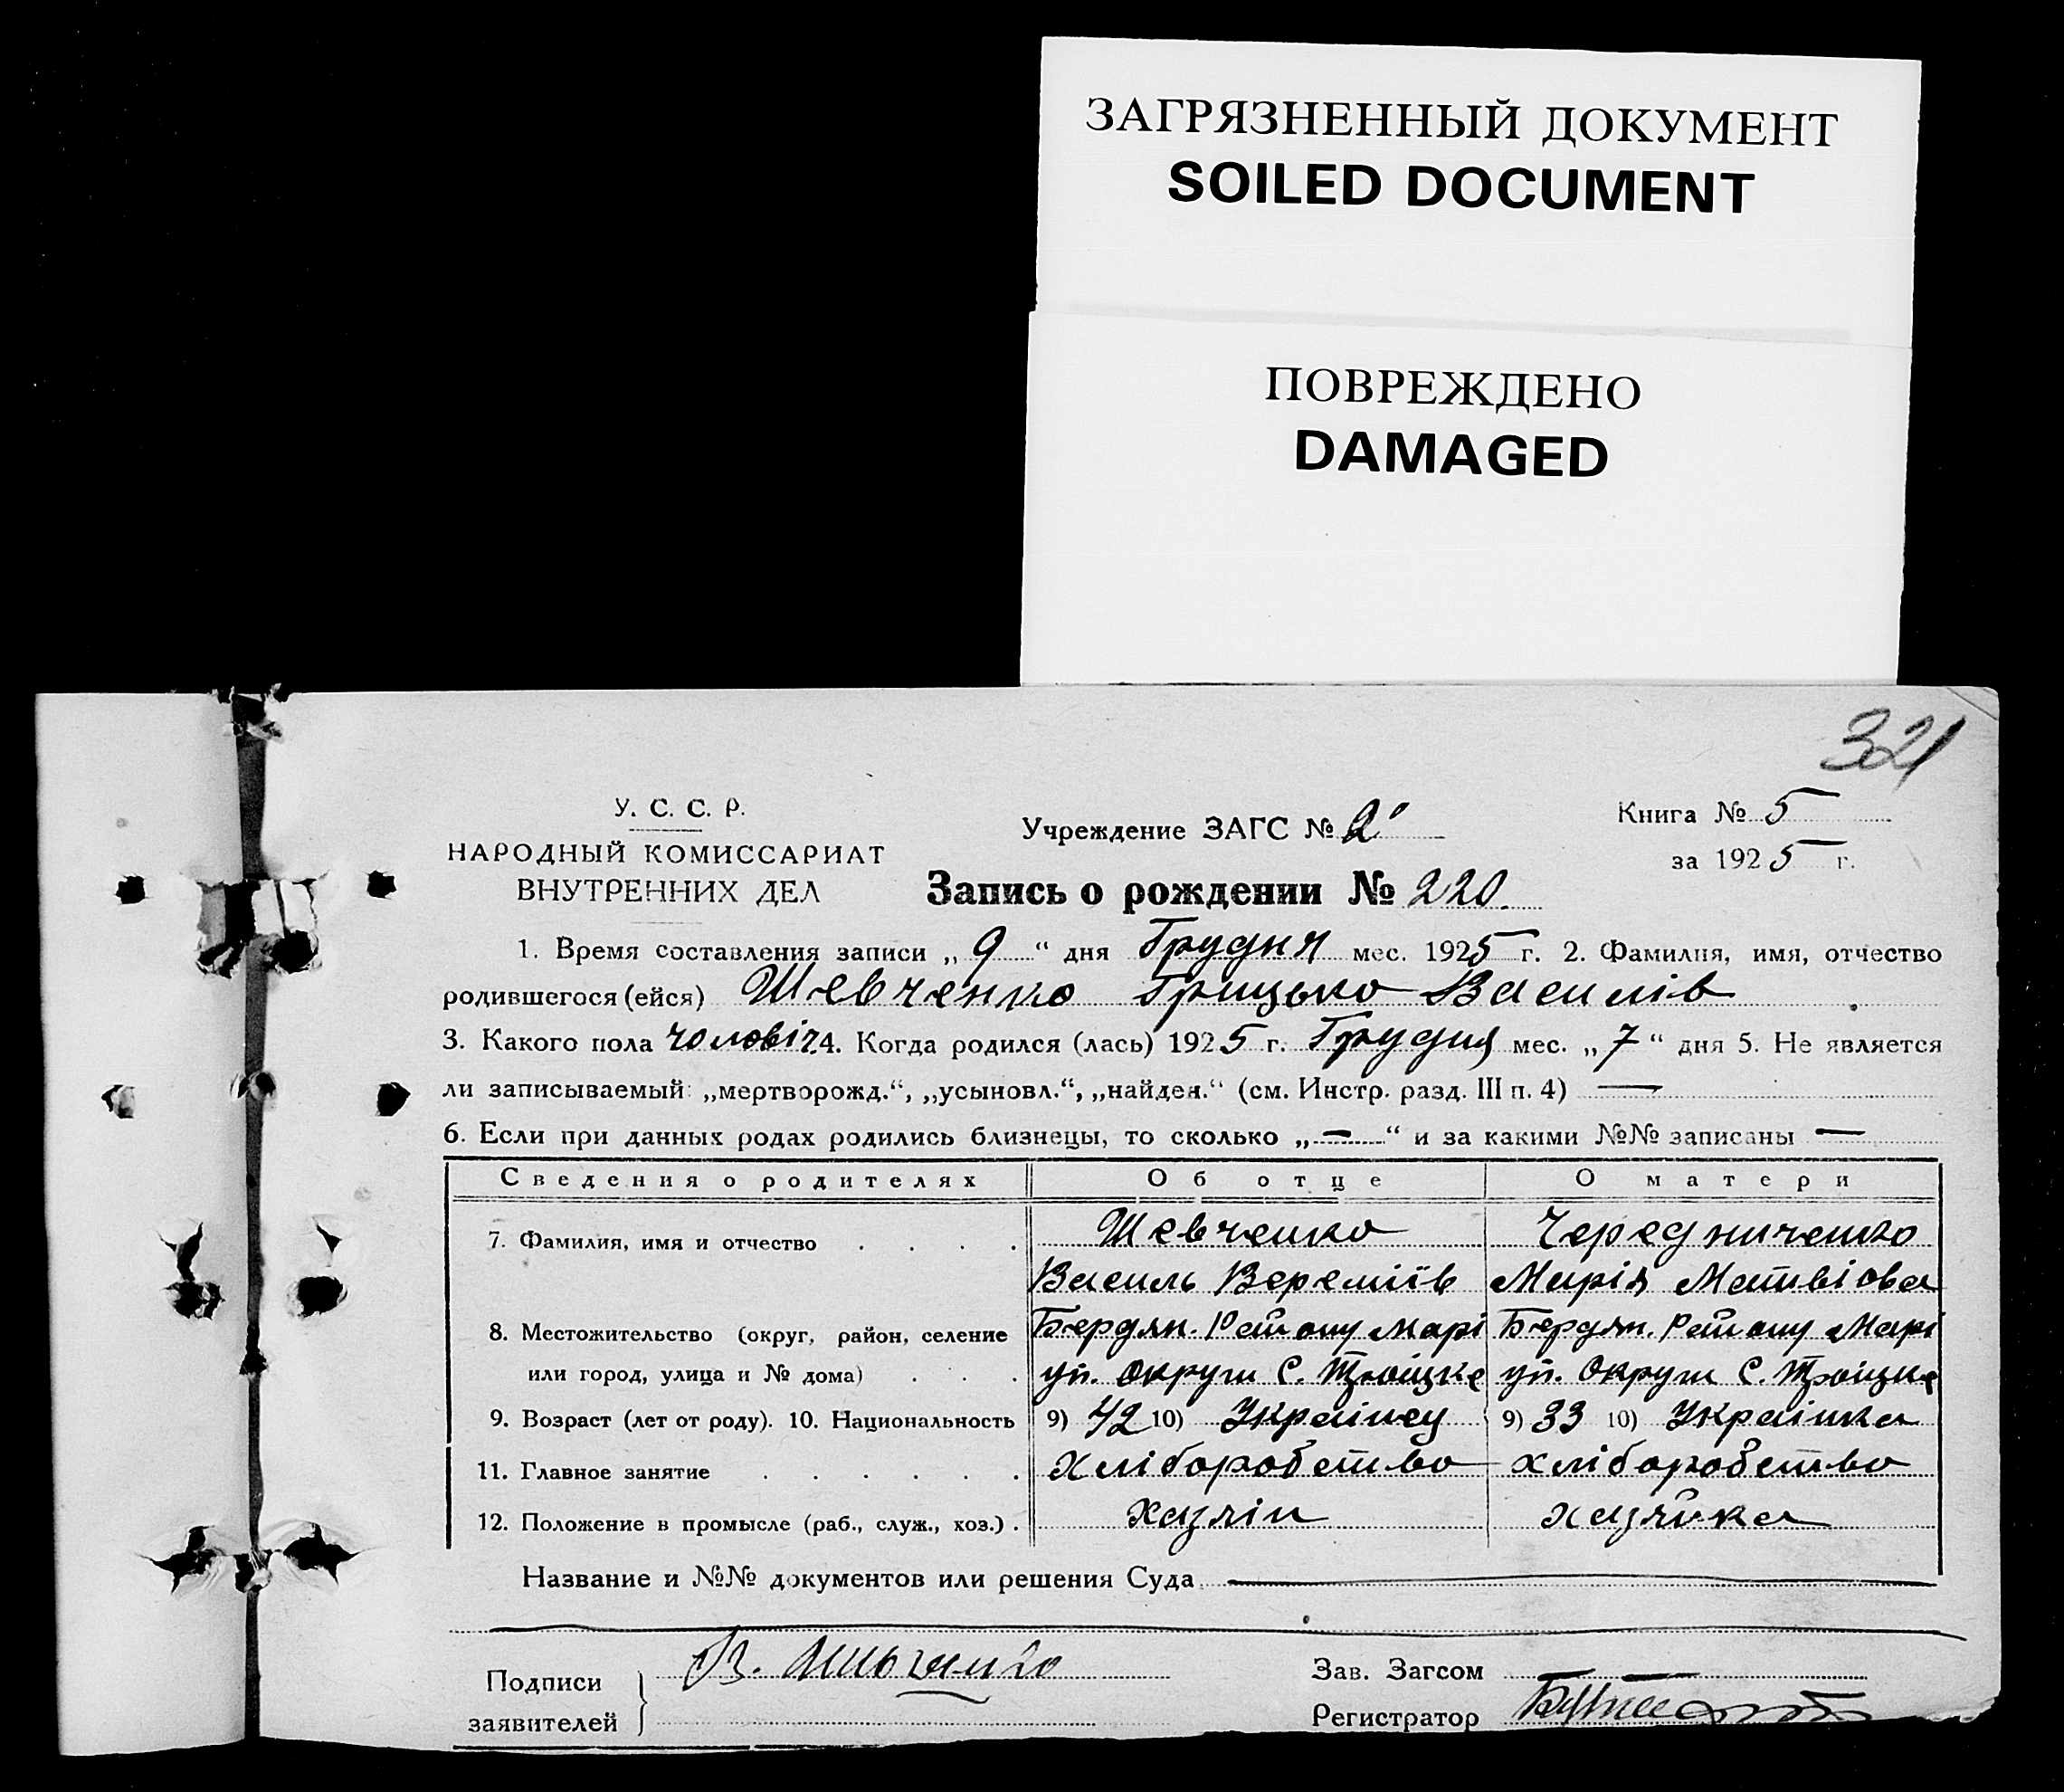 ЗАГРЯЗНЕННЫЙ ДОКУМЕНТ
SOILED DOCUMENT
ПОВРЕЖДЕНО
DAMAGED
321
У. С. С. Р.
НАРОДНЫЙ КОМИССАРИАТ
ВНУТРЕННИХ ДЕЛ
Учреждение ЗАГС № 2
Книга № 5
за 1925 г.
Запись о рождении № 220.
1. Время составления записи „ 9 “ дня Грудня мес. 1925 г. 2. Фамилия, имя, отчество
родившегося (ейся) Шевченко Грицько Василів
3. Какого пола чоловіч. 4. Когда родился (лась) 1925 г. Грудня мес. „ 7 “ дня 5. Не является
ли записываемый: „мертворожд.“, „усыновл.“, „найден.“ (см. Инстр. разд. III п. 4) —
6. Если при данных родах родились близнецы, то сколько „ — “ и за какими №№ записаны —
Сведения о родителях Об отце О матери
7. Фамилия, имя и отчество . . . . Шевченко Чередниченко
Василь Вереміїв Марія Матвіова
8. Местожительство (округ, район, селение Бердян. Району Марі Бердян. Району Марі
или город, улица и № дома) . . . уп. Округи С. Троіцке уп. Округи С. Троіцке
9. Возраст (лет от роду). 10. Национальность 9) 42 10) Украінец 9) 33 10) Украінка
11. Главное занятие . . . . . . Хліборобство хліборобство
12. Положение в промысле (раб., служ., хоз.) . хазяін хазяйка
Название и №№ документов или решения Суда
Подписи
заявителей
В.
Зав. Загсом
Регистратор